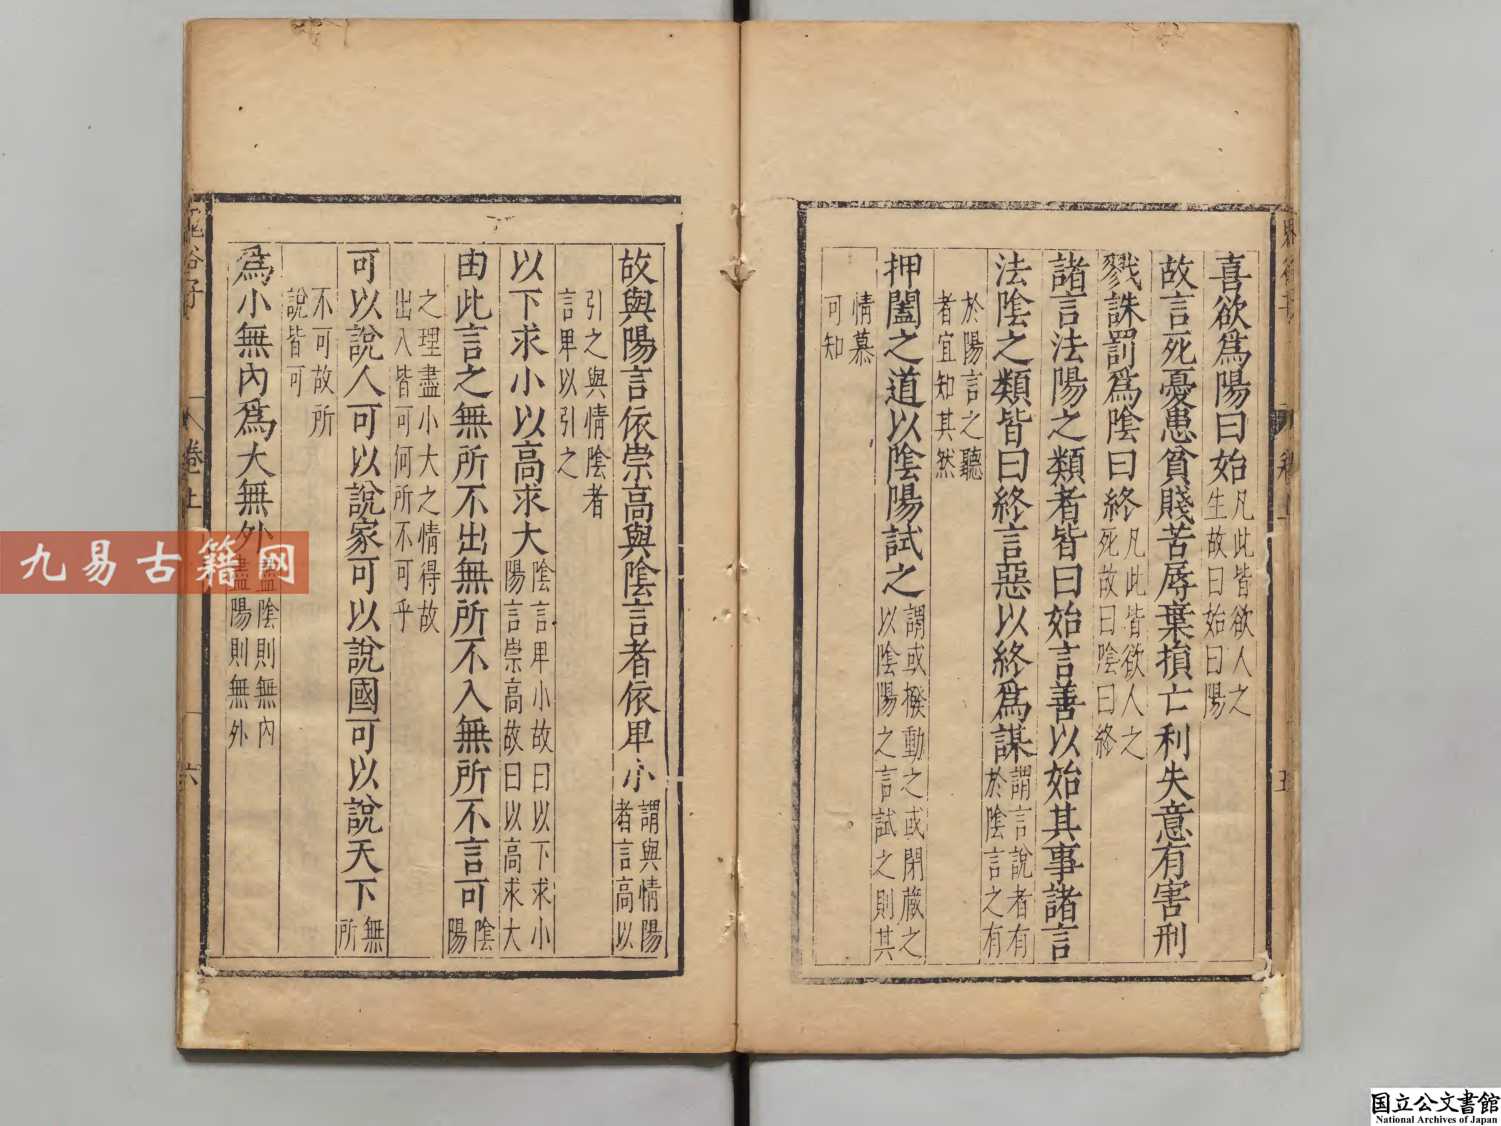 喜欲爲陽曰始凡此皆欲人之生故曰始曰陽
故言死憂患貧賤苦辱棄損亡利失意有害刑
戮誅罰爲陰曰終凡此皆欲人之死故曰陰曰終
諸言法陽之類者皆曰始言善以始其事諸言
法陰之類皆曰終言惡以終爲謀謂言說者有於陰言之有
於陽言之聽者宜知其然
押闔之道以陰陽試之謂或撥動之或閉藏之以陰陽之言試之則其
情慕可知
故與陽言依崇高與陰言者依卑小謂與情陽者言高以
引之與情陰者言卑以引之
以下求小以高求大陰言卑小故曰以下求小陽言崇高故曰以高求大
由此言之無所不出無所不入無所不言可陰陽
之理盡小大之情得故出入皆可何所不可乎
可以說人可以說家可以說國可以說天下無所
不可故所說皆可
爲小無內爲大無外盡陰則無內盡陽則無外
卷上
六
五
九易古籍网
国立公文書館
National Archives of Japan